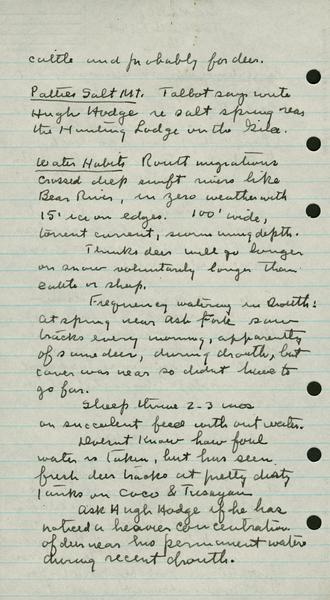 cattle and probably for deer.
Patties Salt Mt. Talbot says write
Hugh Hodge re salt spring near
the Hunting Lodge on the Gila.
Water Habits Routt migrations
crossed deep swift rivers like
Bear River, in zero weather with
15' ice on edges. 100' wide,
torrent current, swimming depth.
Thinks deer will go longer
on snow voluntarily longer than
cattle or sheep.
Frequency watering in drouth:
At spring near Ash Fork saw
tracks every morning, apparently
of same deer, during drouth, but
cover was near so didnt have to
go far.
Sheep thrive 2-3 mos
on succulent feed with out water.
Doesnt know how foul
water is taken, but has seen
fresh deer tracks at pretty dirty
tanks on Coco & Tusayan
Ask Hugh Hodge if he has
noticed a heavier concentration
of deer near his permanent water
during recent drouth.